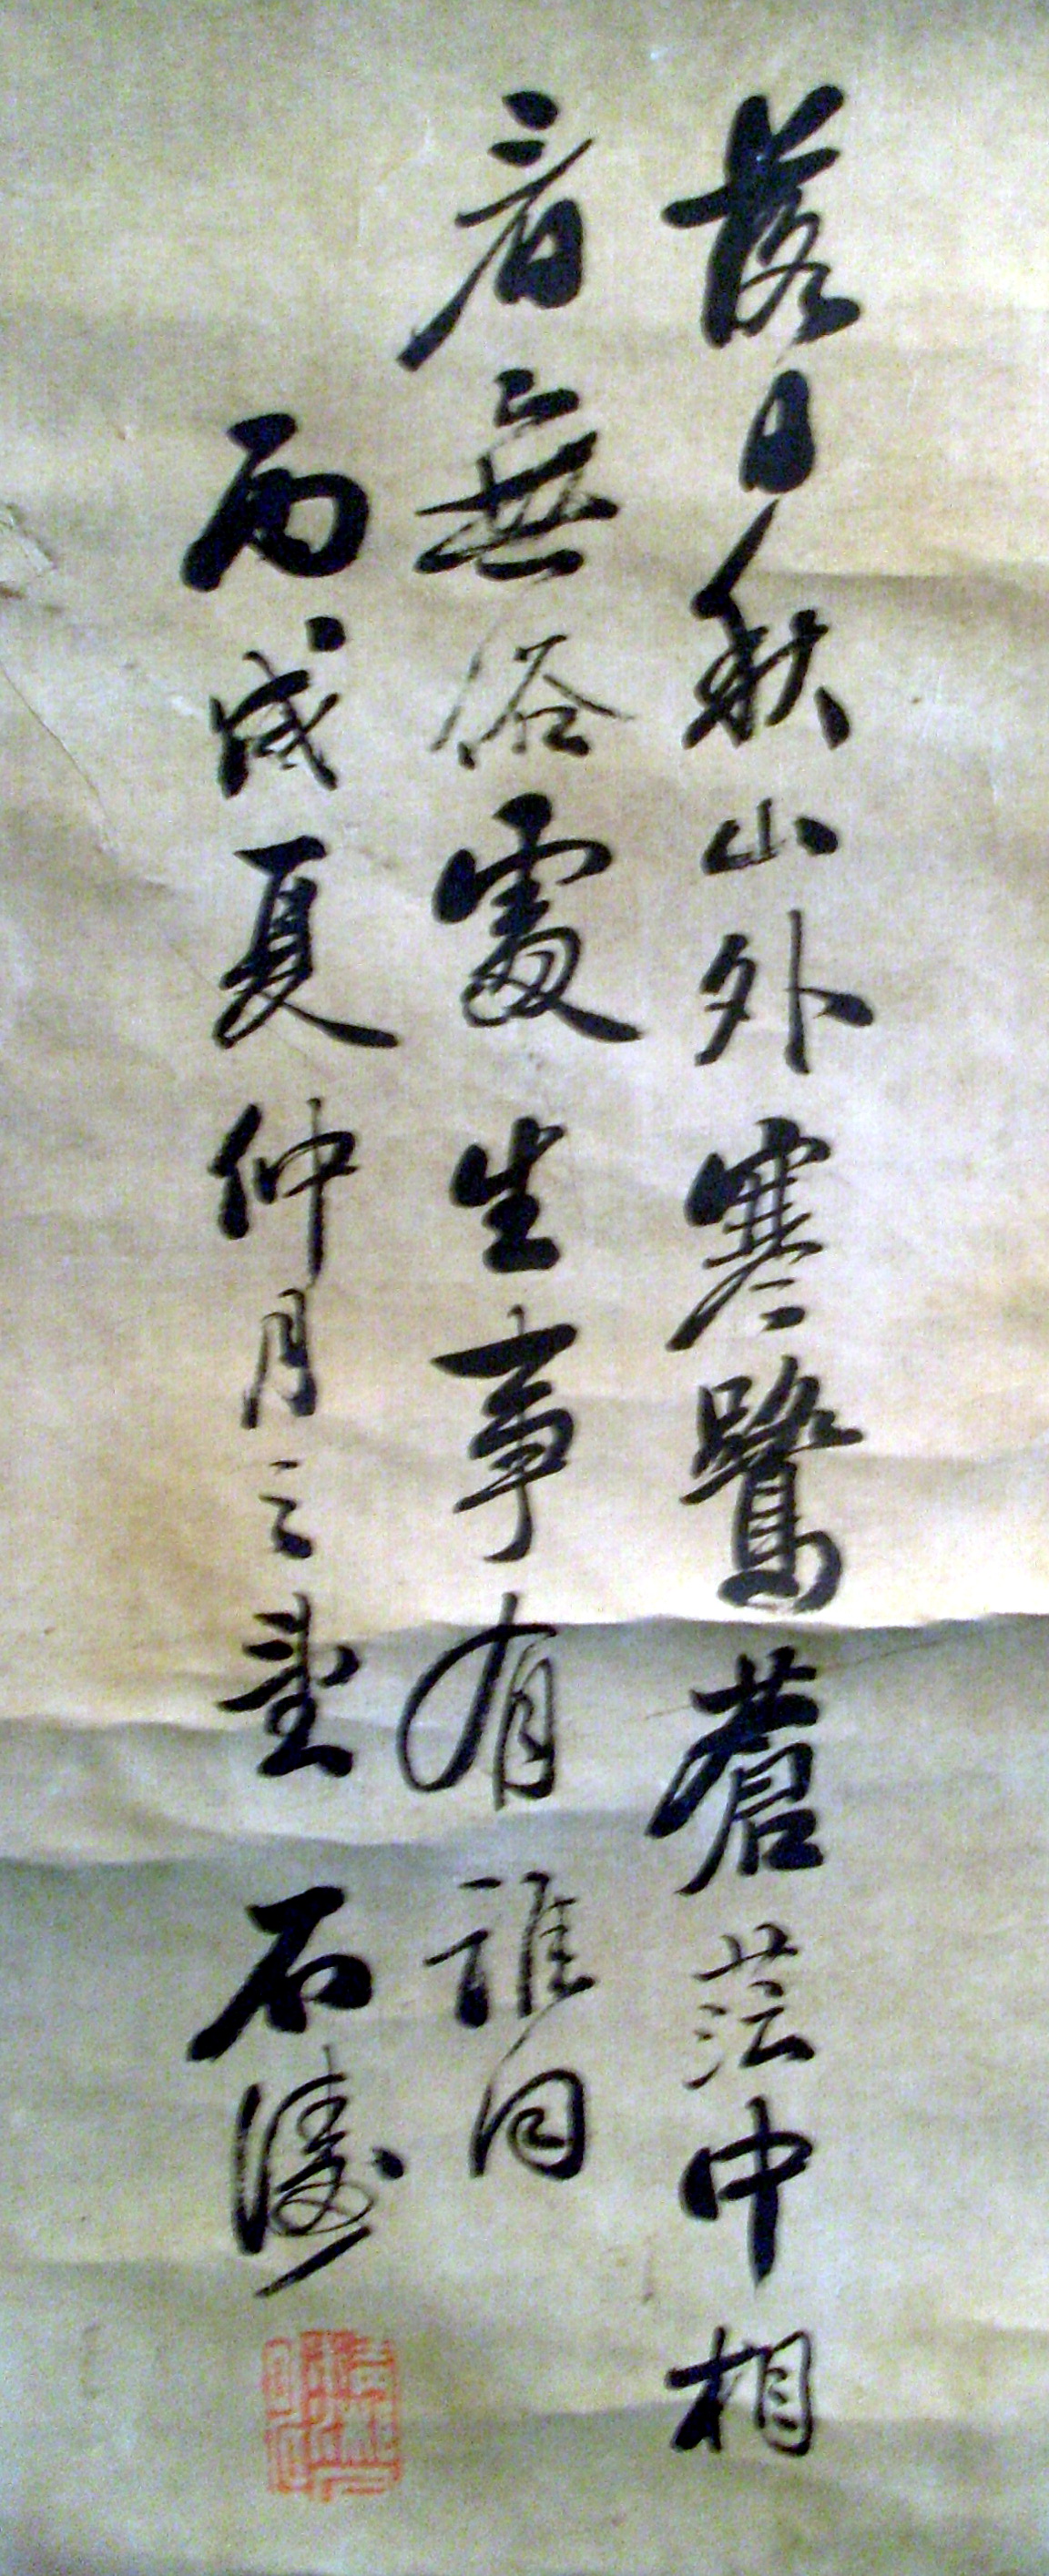 落日秋山外寒鷺蒼茫中相
看無俗處生事有誰同
丙戌夏仲月之望 石濤